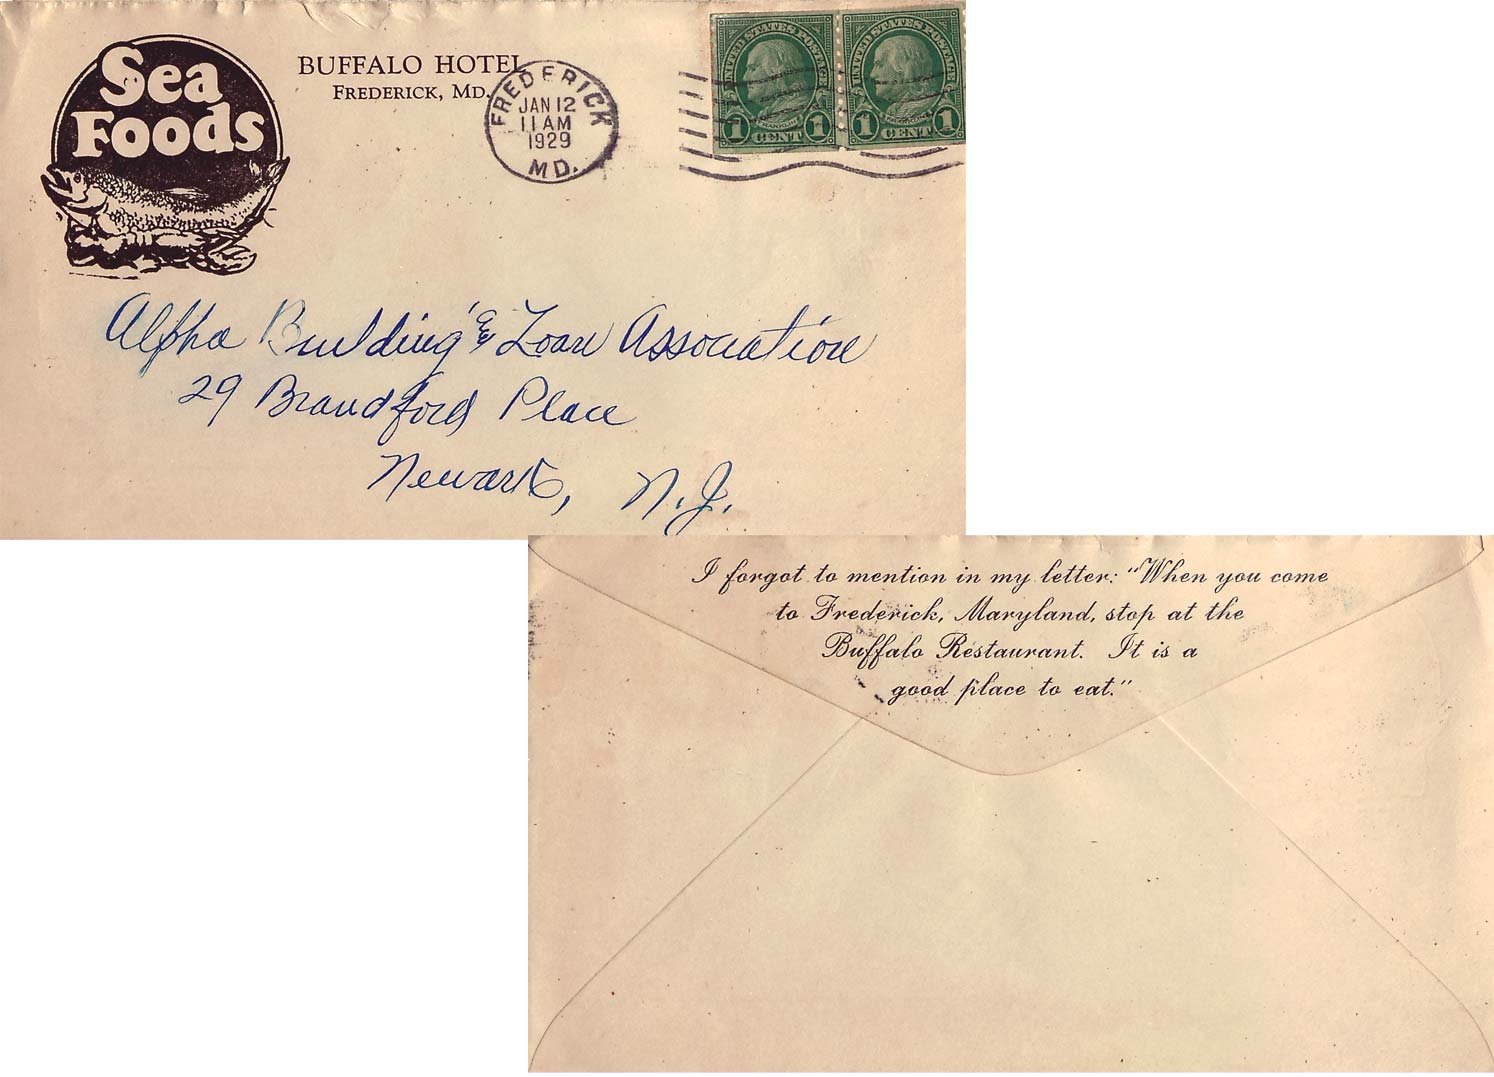 Sea
Foods
BUFFALO HOTEL
FREDERICK, MD.
FREDERICK
JAN 12
11 AM
1929
MD.
UNITED STATES POSTAGE
FRANKLIN
1 CENT 1
UNITED STATES POSTAGE
FRANKLIN
1 CENT 1
Alpha Building & Loan Association
29 Brandford Place
Newark, N.J.
I forgot to mention in my letter: "When you come
to Frederick, Maryland, stop at the
Buffalo Restaurant. It is a
good place to eat."